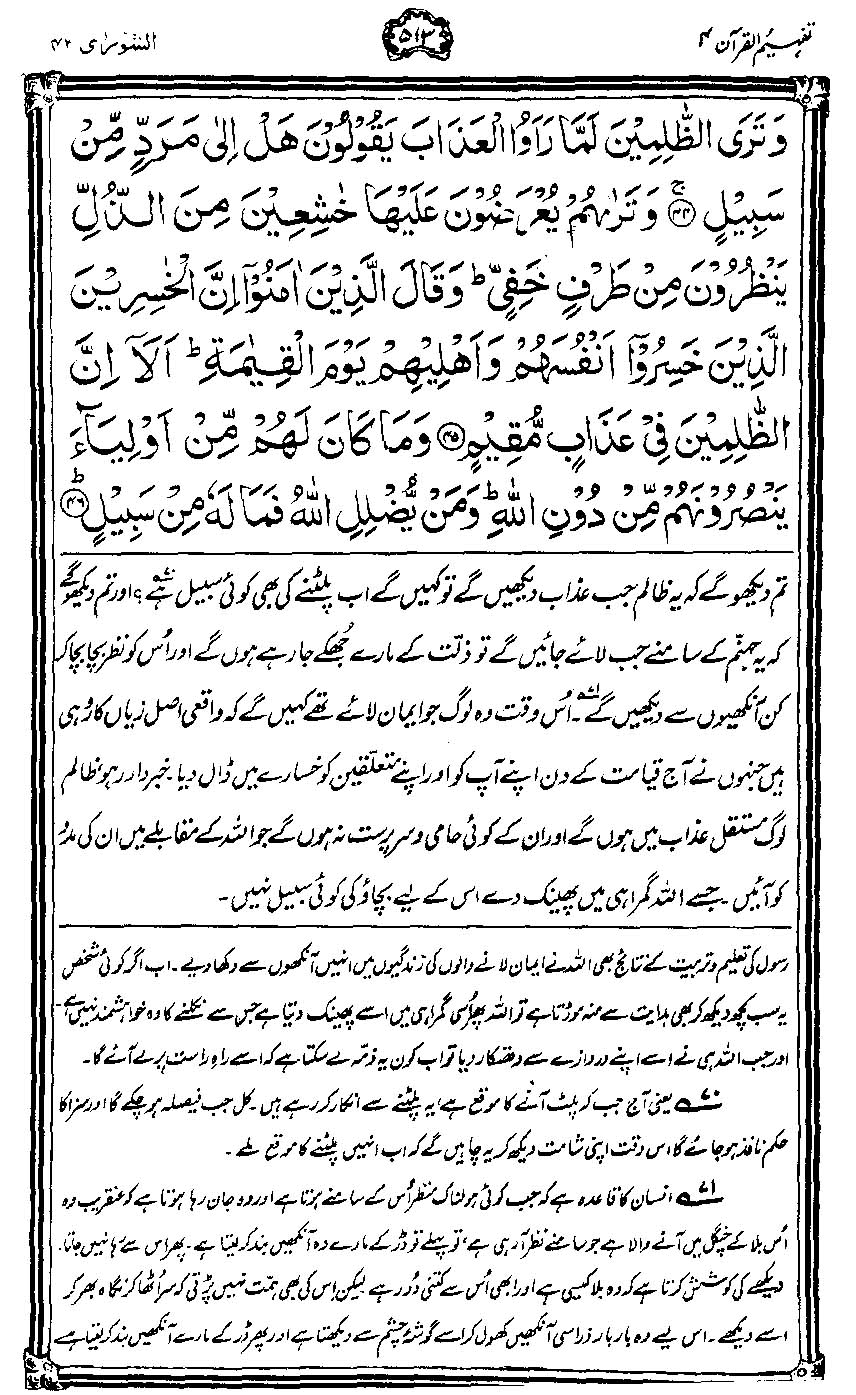 تفہیم القرآن ۴
۵۱۳
الشورٰی ۴۲
وَتَرَى الظّٰلِمِيْنَ لَمَّا رَاَوُا الْعَذَابَ يَقُوْلُوْنَ هَلْ اِلٰى مَرَدٍّ مِّنْ
سَبِيْلٍ ۚ۝۴۴ وَتَرٰىهُمْ يُعْرَضُوْنَ عَلَيْهَا خٰشِعِيْنَ مِنَ الذُّلِّ
يَنْظُرُوْنَ مِنْ طَرْفٍ خَفِيٍّ ؕ وَقَالَ الَّذِيْنَ اٰمَنُوْۤا اِنَّ الْخٰسِرِيْنَ
الَّذِيْنَ خَسِرُوْۤا اَنْفُسَهُمْ وَاَهْلِيْهِمْ يَوْمَ الْقِيٰمَةِ ؕ اَلَاۤ اِنَّ
الظّٰلِمِيْنَ فِيْ عَذَابٍ مُّقِيْمٍ ۝۴۵ وَمَا كَانَ لَهُمْ مِّنْ اَوْلِيَآءَ
يَنْصُرُوْنَهُمْ مِّنْ دُوْنِ اللّٰهِ ؕ وَمَنْ يُّضْلِلِ اللّٰهُ فَمَا لَهٗ مِنْ سَبِيْلٍ ؕ۝۴۶
تم دیکھو گے کہ یہ ظالم جب عذاب دیکھیں گے تو کہیں گے اب پلٹنے کی بھی کوئی سبیل ہے؟۷۰ اور تم دیکھو گے
کہ یہ جہنّم کے سامنے جب لائے جائیں گے تو ذلت کے مارے جُھکے جا رہے ہوں گے اور اُس کو نظر بچا بچا کر
کن آنکھیوں سے دیکھیں گے۷۱۔ اُس وقت وہ لوگ جو ایمان لائے تھے کہیں گے کہ واقعی اصل زیاں کار وُہی
ہیں جنہوں نے آج قیامت کے دن اپنے آپ کو اور اپنے متعلّقین کو خسارے میں ڈال دیا۔ خبردار رہو ظالم
لوگ مستقل عذاب میں ہوں گے اور ان کے کوئی حامی و سرپرست نہ ہوں گے جو اللہ کے مقابلے میں ان کی مدد
کو آئیں۔ جسے اللہ گمراہی میں پھینک دے اس کے لیے بچاؤ کی کوئی سبیل نہیں۔
رسول کی تعلیم و تربیت کے نتائج بھی اللہ نے ایمان لانے والوں کی زندگیوں میں انہیں آنکھوں سے دکھا دیے۔ اب اگر کوئی شخص
یہ سب کچھ دیکھ کر بھی ہدایت سے منہ موڑتا ہے تو اللہ پھر اُسی گمراہی میں اسے پھینک دیتا ہے جس سے نکلنے کا وہ خواہشمند نہیں ہے۔
اور جب اللہ ہی نے اسے اپنے دروازے سے دھتکار دیا تو اب کون یہ ذمّہ لے سکتا ہے کہ اسے راہِ راست پر لے آئے گا۔
۷۰ یعنی آج جب کہ پلٹ آنے کا موقع ہے، یہ پلٹنے سے انکار کر رہے ہیں۔ کل جب فیصلہ ہو چکے گا اور سزا کا
حکم نافذ ہو جائے گا اس وقت اپنی شامت دیکھ کر یہ چاہیں گے کہ اب انہیں پلٹنے کا موقع ملے۔
۷۱ انسان کا قاعدہ ہے کہ جب کوئی ہولناک منظر اُس کے سامنے ہوتا ہے اور وہ جان رہا ہوتا ہے کہ عنقریب وہ
اُس بلا کے چنگل میں آنے والا ہے جو سامنے نظر آ رہی ہے، تو پہلے تو ڈر کے مارے وہ آنکھیں بند کر لیتا ہے۔ پھر اس سے رہا نہیں جاتا۔
دیکھنے کی کوشش کرتا ہے کہ وہ بلا کیسی ہے اور ابھی اُس سے کتنی دُور ہے لیکن اِس کی بھی ہمت نہیں پڑتی کہ سر اُٹھا کر نگاہ بھر کر
اسے دیکھے۔ اس لیے وہ بار بار ذرا سی آنکھیں کھول کر اسے گوشۂ چشم سے دیکھتا ہے اور پھر ڈر کے مارے آنکھیں بند کر لیتا ہے